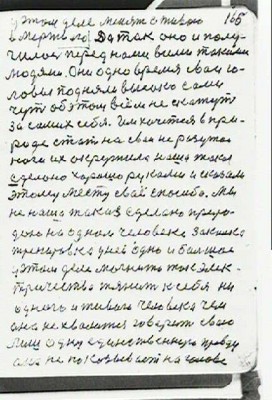 165
у этом деле менят с живого
в мертвого Да так оно и полу-
чилось перед нами всеми такими
людьми. Они одно время свои го-
ловы подняли высоко сами
чут об этом всем не скажут
за самих себя. Им хочется в при-
роде стат на свои не разутых
ног их окружила наша такая
сделано хорошо руками и сказали
этому месту своё спасибо. Мы
не наш таказ сделано приро-
дою на одном человеке закалка
тренировка дней одно и большое
у этом деле молчать ток элек-
тричество тянит к себе ни
одного и живого человека чем
она не хвалится говорит свою
лиш одну единственную правду
она не показывает на голове